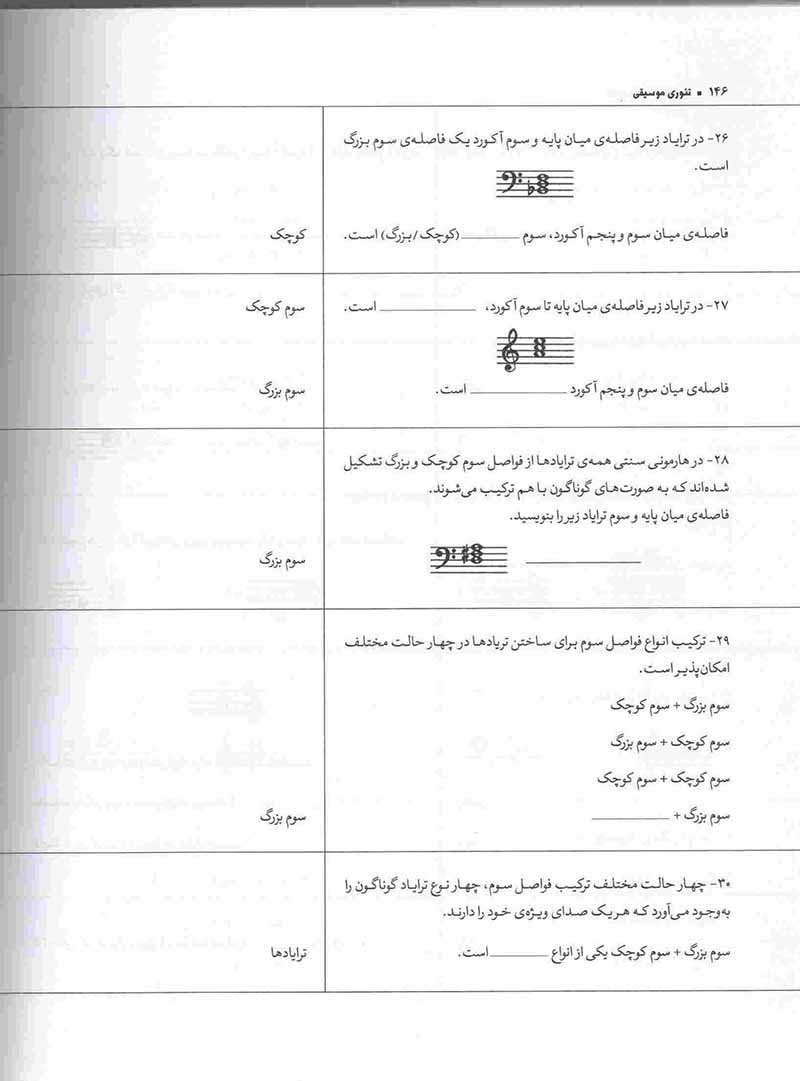 ۱۴۶ ▪ تئوری موسیقی
۲۶- در ترایاد زیر فاصله‌ی میان پایه و سوم آکورد یک فاصله‌ی سوم بزرگ
است.
فاصله‌ی میان سوم و پنجم آکورد، سوم ________ (کوچک/بزرگ) است.
کوچک
۲۷- در ترایاد زیر فاصله‌ی میان پایه تا سوم آکورد، ________ است.
سوم کوچک
فاصله‌ی میان سوم و پنجم آکورد ________ است.
سوم بزرگ
۲۸- در هارمونی سنتی همه‌ی ترایادها از فواصل سوم کوچک و بزرگ تشکیل
شده‌اند که به صورت‌های گوناگون با هم ترکیب می‌شوند.
فاصله‌ی میان پایه و سوم ترایاد زیر را بنویسید.
________
سوم بزرگ
۲۹- ترکیب انواع فواصل سوم برای ساختن تریادها در چهار حالت مختلف
امکان‌پذیر است.
سوم بزرگ + سوم کوچک
سوم کوچک + سوم بزرگ
سوم کوچک + سوم کوچک
سوم بزرگ + ________
سوم بزرگ
۳۰- چهار حالت مختلف ترکیب فواصل سوم، چهار نوع ترایاد گوناگون را
به‌وجود می‌آورد که هر یک صدای ویژه‌ی خود را دارند.
سوم بزرگ + سوم کوچک یکی از انواع ________ است.
ترایادها